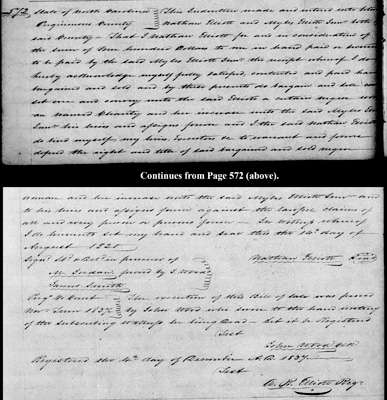 572 State of North Carolina This Indenture made and entered into between
Perquimans County Nathan Elliott and Myles Elliott Junr both of
said County - That I Nathan Elliott for and in consideration of
the sum of four hundred Dollars to me in hand paid or secured
to be paid by the said Myles Elliott Junr the receipt whereof I do
hereby acknowledge myself fully satisfied, contented and paid have
bargained and sold and by these presents do bargain and sell
set over and convey unto the said Elliott a certain negro
an named Charity and her increase unto the said Myles Elliott
Junr his heirs and assigns forever and I the said Nathan Elliott
do bind myself my heirs Executors &c to warrant and forever
defend the right and title of said bargained and sold negro
Continues from Page 572 (above).
woman and her increase unto the said Myles Elliott Junr and
to his heirs and assigns forever against the lawful claims of
all and every person or persons forever - In witness whereof
I do hereunto set my hand and seal this the 14th day of
August 1820
Signd Sld & Ded in presence of Nathan Elliott Seal
M. Jordan proved by J. Wood
James Smith
Perqs Co Court The execution of this Bill of Sale was proved
Nov Term 1837 by John Wood who swore to the hand writing
of the Subscribing witness he being dead - Let it be Registered
Test
John Wood Clk
Registered the 4th day of December A.D. 1837
Test